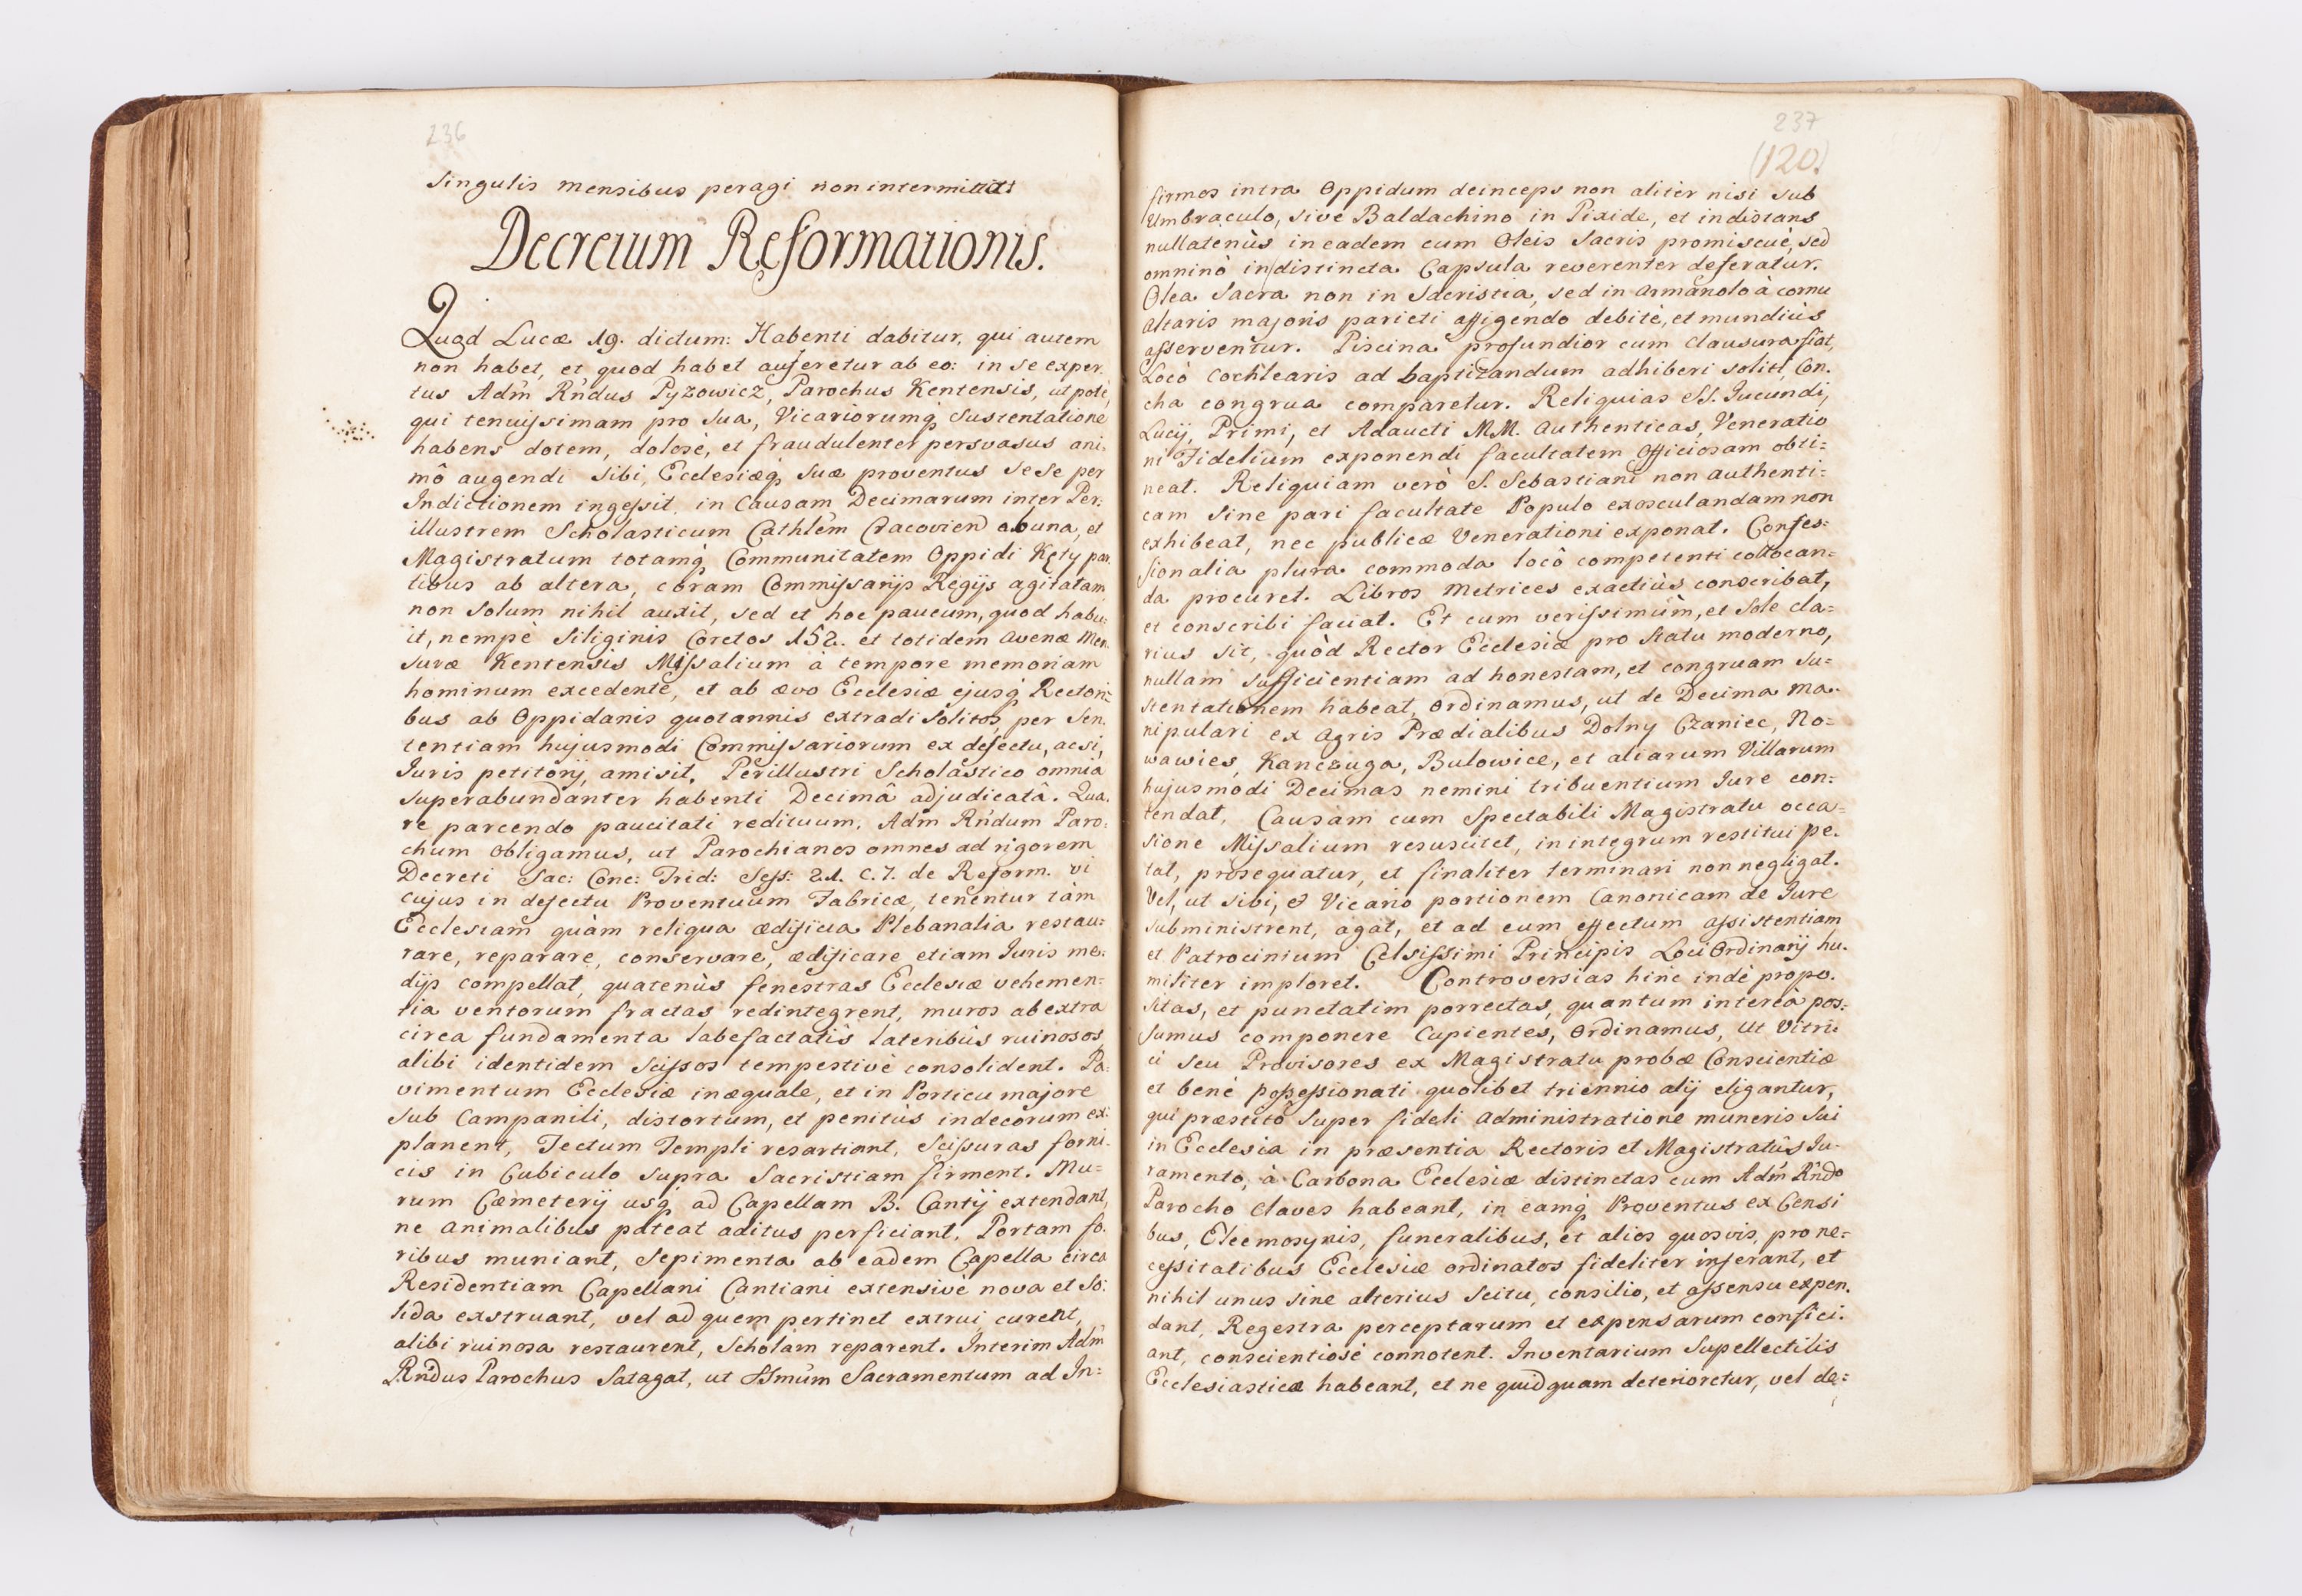 236
singulis mensibus peragi non intermittat:
Decretum Reformationis.
Quod Lucæ 19. dictum: Habenti dabitur, qui autem
non habet, et quod habet auferetur ab eo: in se exper-
tus Adm Rndus Pyzowicz, Parochus Kentensis, ut poté,
qui tenuissimam pro sua, Vicariorumq sustentatione
habens dotem, dolosè, et fraudulenter persvasus ani-
mô augendi sibi, Ecclesiæq suæ proventus sese per
Indictionem ingessit, in Causam Decimarum inter Per-
illustrem Scholasticum Cathlem Cracovien ab una, et
Magistratum totamq Communitatem Oppidi Kęty par-
tibus ab altera, coram Commissarijs Regijs agitatam
non solum nihil auxit, sed et hoc paucum, quod habu-
it, nempè Siliginis Coretos 152. et totidem avenæ Men-
suræ Kentensis Missalium à tempore memoriam
hominum excedente, et ab ævo Ecclesiæ ejusq Rectori-
bus ab Oppidanis quotannis extradi solitos, per Sen-
tentiam hujusmodi Commissariorum ex defectu, acsi,
Iuris petitorij, amisit, Perillustri Scholastico omnia
superabundanter habenti Decimâ adjudicatâ. Qua-
re parcendo paucitati redituum, Adm Rndum Paro-
chum obligamus, ut Parochianos omnes ad rigorem
Decreti Sac: Conc: Trid: Sess: 21. C. 7. de Reform. vi
cujus in defectu Proventuum Fabricæ, tenentur tàm
Ecclesiam quàm reliqua ædificia Plebanalia restau-
rare, reparare, conservare, ædificare etiam Iuris me-
dijs compellat, quatenùs fenestras Ecclesiæ vehemen-
tia ventorum fractas redintegrent, muros ab extra
circa fundamenta labefactatis lateribùs ruinosos,
alibi identidem scissos tempestivè consolident. Pa-
vimentum Ecclesiæ inæquale, et in Porticu majore
sub Campanili, distortum, et penitùs indecorum ex-
planent, Tectum Templi resartiant, Scissuras forni-
cis in Cubiculo supra Sacristiam firment. Mu-
rum Cæmeterij usq ad Capellam B. Cantij extendant,
ne animalibus pateat aditus perficiant, Portam fo-
ribus muniant, Sepimenta ab eadem Capella circa
Residentiam Capellani Cantiani extensivè nova et so-
lida exstruant, vel ad quem pertinet extrui curent,
alibi ruinosa restaurent, Scholam reparent. Interim Adm
Rndus Parochus Satagat, ut SSmum Sacramentum ad In-
237
(120.)
firmos intra Oppidum deinceps non alitèr nisi sub
Umbraculo, sive Baldachino in Pixide, et in distans
nullatenùs in eadem cum Oleis Sacris promiscuè, sed
omninò in distincta Capsula reverenter deferatur.
Olea Sacra non in Sacristia, sed in armariolo à cornu
altaris majoris parieti affigendo debitè, et mundiùs
asserventur. Piscina profundior cum clausura fiat,
Locò cochlearis ad baptizandum adhiberi soliti, Con-
cha congrua comparetur. Reliquias SS. Iucundi,
Lucij, Primi, et Adaucti MM. authenticas, Veneratio
ni Fidelium exponendi facultatem Officiosam obti-
neat. Reliquiam verò S. Sebastiani non authenti-
cam sine pari facultate Populo exosculandam non
exhibeat, nec publicæ Venerationi exponat. Confes-
sionalia plura commoda locô competenti collocan-
da procuret. Libros Metrices exactiùs conscribat,
et conscribi faciat. Et cum verissimùm, et Sole cla-
rius sit, quòd Rector Ecclesiæ pro Statu moderno,
nullam sufficientiam ad honestam, et congruam su-
stentationem habeat, ordinamus, ut de Decima ma-
nipulari ex Agris Prædialibus Dolny Czaniec, No-
wawies, Kanczuga, Bulowice, et aliarum Villarum
hujusmodi Decimas nemini tribuentium Iure con-
tendat, Causam cum Spectabili Magistratu occa-
sione Missalium resuscitet, in integrum restitui pe-
tat, prosequatur, et finaliter terminari non negligat.
Vel, ut sibi, et Vicario portionem Canonicam de Iure
subministrent, agat, et ad eum effectum assistentiam
et Patrocinium Celsissimi Principis Loci Ordinarij hu-
militer imploret. Controversias hinc indè propo-
sitas, et punctatim porrectas, quantum intereà pos-
sumus componere Cupientes, Ordinamus, ut Vitri-
ci seu Provisores ex Magistratu probæ Conscientiæ
et benè possessionati quolibet triennio alij eligantur,
qui præstitò super fideli administratione muneris sui
in Ecclesia in præsentia Rectoris et Magistratûs Iu-
ramento, à Carbona Ecclesiæ distinctas cum Adm Rndo
Parocho claves habeant, in eamq Proventus ex Censi
bus, Eleemosynis, funeralibus, et alios quosvis, pro ne-
cessitatibus Ecclesiæ ordinatos fideliter inferant, et
nihil unus sine alterius scitu, consilio, et assensu expen-
dant, Regestra perceptarum et expensarum confici-
ant, conscientiosè connotent. Inventarium Supellectilis
Ecclesiasticæ habeant, et ne quidquam deterioretur, vel de-